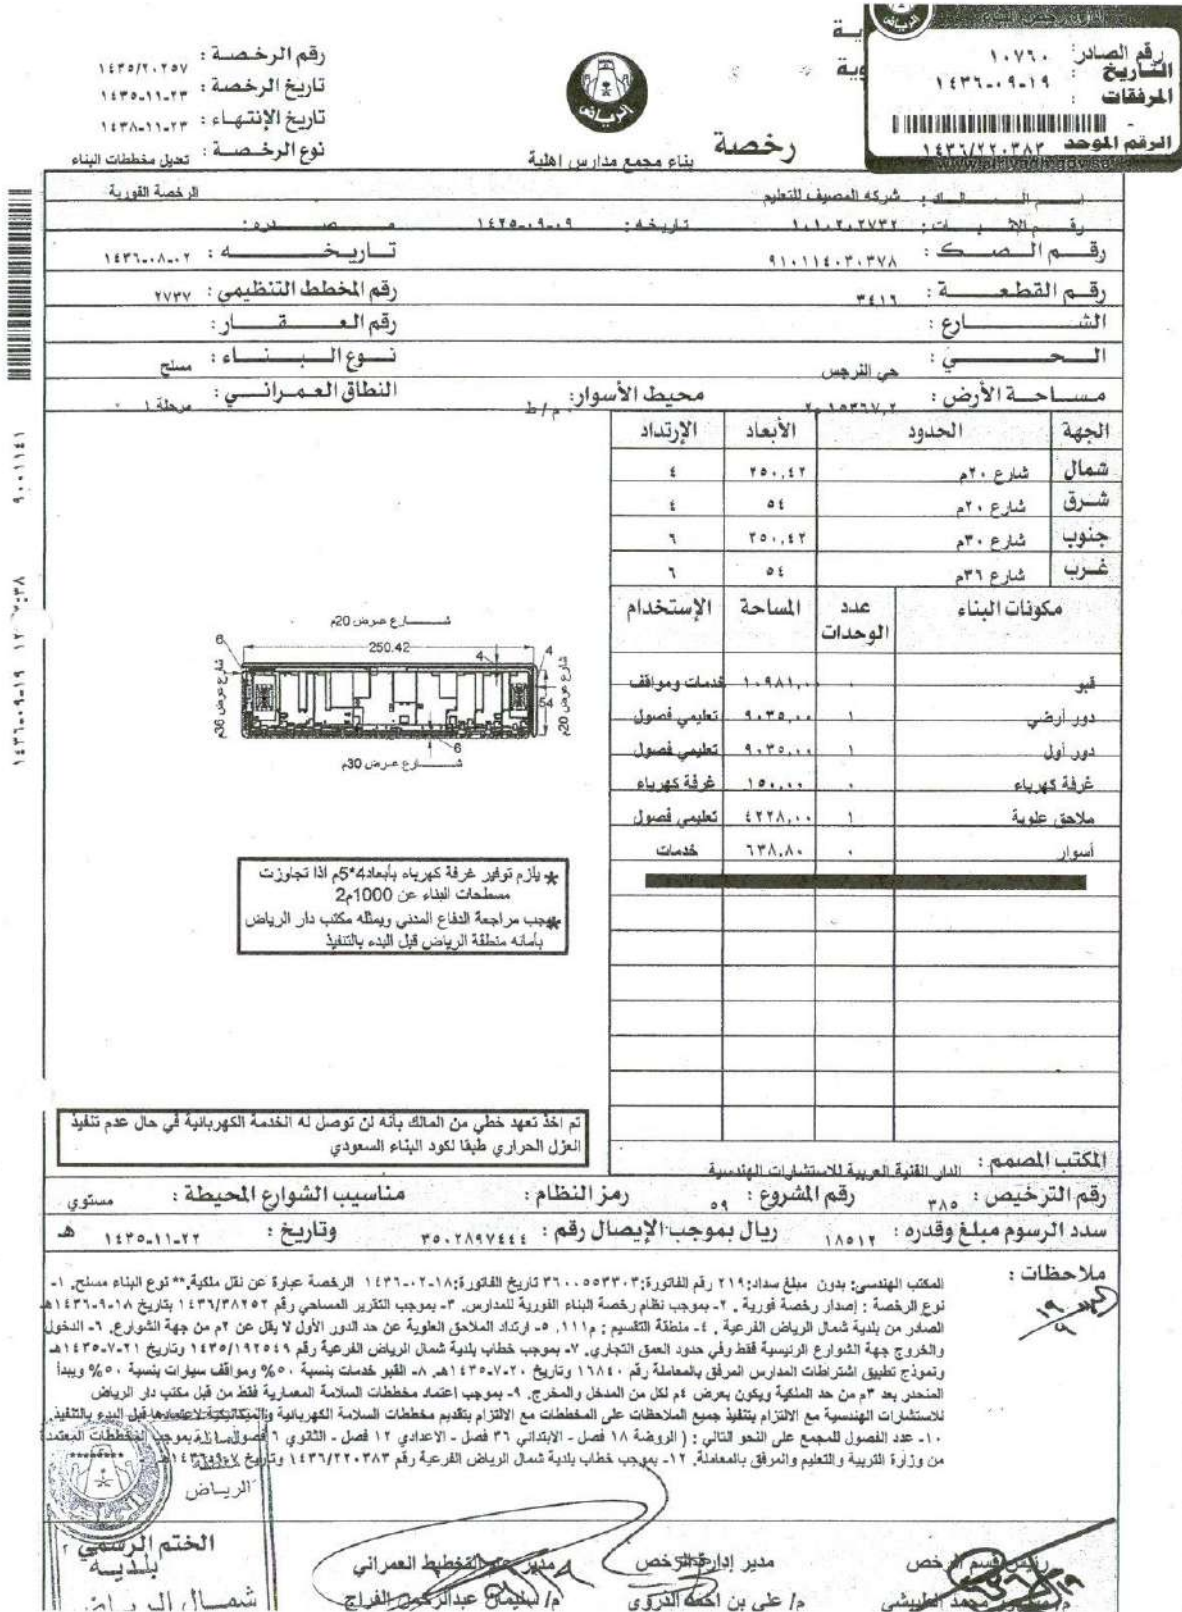 رقم الصادر: ١٠٧٦٠
التاريخ : ١٤٣٦-٠٩-١٩
المرفقات :
الرقم الموحد ١٤٣٦/٢٢٠٣٨٣
www.alriyadh.gov.sa
الرياض
رقم الرخصة : ١٤٣٥/٢٠٢٥٧
تاريخ الرخصة : ١٤٣٥-١١-٢٣
تاريخ الإنتهاء : ١٤٣٨-١١-٢٣
نوع الرخصة : تعديل مخططات البناء
رخصة بناء مجمع مدارس اهلية
شركه المصيف للتعليم الرخصة الفورية
١٠١٠٢٠٢٧٣٢ تاريخه : ١٤٢٥-٠٩-٠٩
رقم الصك : ٩١٠١١٤٠٣٠٣٧٨ تاريخه : ١٤٣٦-٠٨-٠٢
رقم القطعة : ٣٤١٦ رقم المخطط التنظيمي : ٢٧٣٧
الشارع : رقم العقار :
الحي : حي النرجس نوع البناء : مسلح
مساحة الأرض : ١٥٣٦٧,٢ محيط الأسوار: م / ط النطاق العمراني : مرحلة ١
الجهة الحدود الأبعاد الإرتداد
شمال شارع ٢٠م ٢٥٠,٤٢ ٤
شرق شارع ٢٠م ٥٤ ٤
جنوب شارع ٣٠م ٢٥٠,٤٢ ٦
غرب شارع ٣٦م ٥٤ ٦
مكونات البناء عدد الوحدات المساحة الإستخدام
قبو ٠ ١٠٩٨١,٠٠ خدمات ومواقف
دور أرضي ١ ٩٠٣٥,٠٠ تعليمي فصول
دور أول ١ ٩٠٣٥,٠٠ تعليمي فصول
غرفة كهرباء ٠ ١٥٠,٠٠ غرفة كهرباء
ملاحق علوية ١ ٤٢٢٨,٠٠ تعليمي فصول
أسوار ٠ ٦٣٨,٨٠ خدمات
شارع عرض 20م
250.42
6
4
4
54
شارع عرض 20م
شارع عرض 36م
6
شارع عرض 30م
* يلزم توفير غرفة كهرباء بأبعاد4*5م اذا تجاوزت
مسطحات البناء عن 1000م2
*يجب مراجعة الدفاع المدني ويمثله مكتب دار الرياض
بأمانه منطقة الرياض قبل البدء بالتنفيذ
تم اخذ تعهد خطي من المالك بأنه لن توصل له الخدمة الكهربائية في حال عدم تنفيذ
العزل الحراري طبقا لكود البناء السعودي
المكتب المصمم : الدار الفنية العربية للاستشارات الهندسية
رقم الترخيص : ٣٨٥ رقم المشروع : ٥٩ رمز النظام : مناسيب الشوارع المحيطة : مستوي
سدد الرسوم مبلغ وقدره : ١٨٥١٢ ريال بموجب الإيصال رقم : ٣٥٠٢٨٩٧٤٤٤ وتاريخ : ١٤٣٥-١١-٢٢ هـ
ملاحظات :
المكتب الهندسي: بدون مبلغ سداد:٢١٩ رقم الفاتورة:٣٦٠٠٥٥٣٣٠٣ تاريخ الفاتورة:١٨-٠٢-١٤٣٦ الرخصة عبارة عن نقل ملكية.** نوع البناء مسلح. ١-
نوع الرخصة : إصدار رخصة فورية . ٢- بموجب نظام رخصة البناء الفورية للمدارس. ٣- بموجب التقرير المساحي رقم ١٤٣٦/٣٨٢٥٢ بتاريخ ١٨-٩-١٤٣٦هـ
الصادر من بلدية شمال الرياض الفرعية . ٤- منطقة التقسيم : م١١١. ٥- ارتداد الملاحق العلوية عن حد الدور الأول لا يقل عن ٢م من جهة الشوارع. ٦- الدخول
والخروج جهة الشوارع الرئيسية فقط وفي حدود العمق التجاري. ٧- بموجب خطاب بلدية شمال الرياض الفرعية رقم ١٤٣٥/١٩٢٥٤٩ وتاريخ ٢١-٧-١٤٣٥هـ
ونموذج تطبيق اشتراطات المدارس المرفق بالمعاملة رقم ١٦٨٤٠ وتاريخ ٢٠-٧-١٤٣٥هـ. ٨- القبو خدمات بنسبة ٥٠% ومواقف سيارات بنسبة ٥٠% ويبدأ
المنحدر بعد ٣م من حد الملكية ويكون بعرض ٤م لكل من المدخل والمخرج. ٩- بموجب اعتماد مخططات السلامة المعمارية فقط من قبل مكتب دار الرياض
للاستشارات الهندسية مع الالتزام بتنفيذ جميع الملاحظات على المخططات مع الالتزام بتقديم مخططات السلامة الكهربائية والميكانيكية لاعتمادها قبل البدء بالتنفيذ
١٠- عدد الفصول للمجمع على النحو التالي : ( الروضة ١٨ فصل - الابتدائي ٣٦ فصل - الاعدادي ١٢ فصل - الثانوي ٦ فصول بموجب المخططات المعتمدة
من وزارة التربية والتعليم والمرفق بالمعاملة. ١٢- بموجب خطاب بلدية شمال الرياض الفرعية رقم ١٤٣٦/٢٢٠٣٨٣ وتاريخ
منطقة
الرياض
مدير إدارة الرخص
مدير التخطيط العمراني
الختم الرسمي
م/ علي بن احمد
م/ سليمان عبدالرحمن الفراج
بلدية
شمال الرياض
٩٠٠١١٤١
١٤٣٦-٠٩-١٩